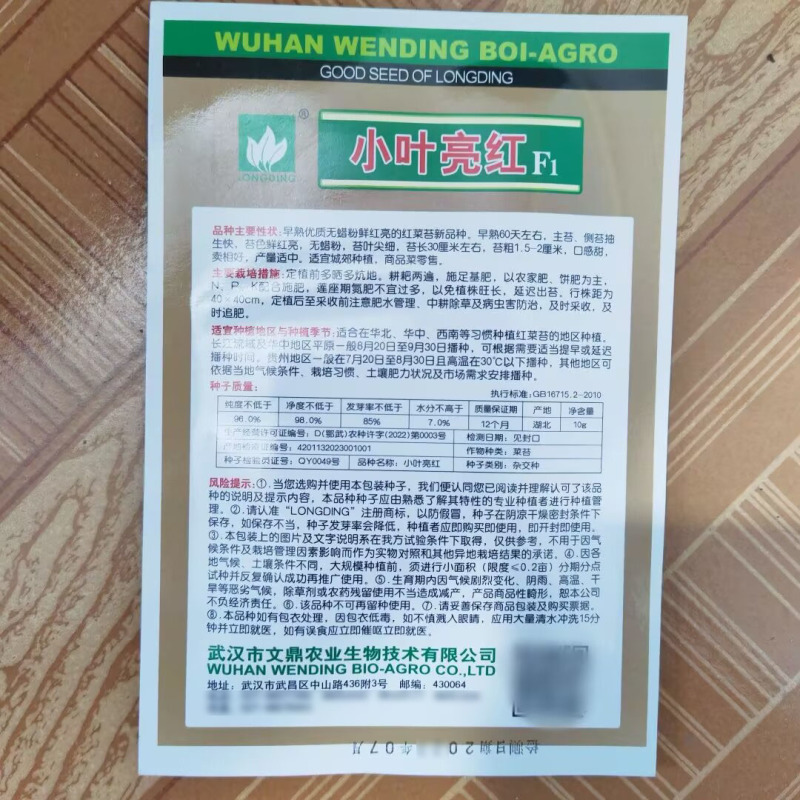 WUHAN WENDING BOI-AGRO
GOOD SEED OF LONGDING
LONGDING
®
小叶亮红F1
品种主要性状：早熟优质无蜡粉鲜红亮的红菜苔新品种。早熟60天左右，主苔、侧苔抽
生快，苔色鲜红亮，无蜡粉，苔叶尖细，苔长30厘米左右，苔粗1.5-2厘米，口感甜，
卖相好，产量适中。适宜城郊种植，商品菜零售。
主要栽培措施：定植前多晒多炕地。耕耙两遍，施足基肥，以农家肥、饼肥为主，
N、P、K配合施肥，莲座期氮肥不宜过多，以免植株旺长，延迟出苔。行株距为
40×40cm，定植后至采收前注意肥水管理、中耕除草及病虫害防治，及时采收，及
时追肥。
适宜种植地区与种植季节：适合在华北、华中、西南等习惯种植红菜苔的地区种植，
长江流域及华中地区平原一般8月20日至9月30日播种，可根据需要适当提早或延迟
播种时间，贵州地区一般在7月20日至8月30日且高温在30℃以下播种，其他地区可
依据当地气候条件、栽培习惯、土壤肥力状况及市场需求安排播种。
种子质量：
执行标准：GB16715.2-2010
纯度不低于 净度不低于 发芽率不低于 水分不高于 质量保证期 产地 净含量
96.0% 98.0% 85% 7.0% 12个月 湖北 10g
生产经营许可证编号：D(鄂武)农种许字(2022)第0003号 检测日期：见封口
产地检疫证编号：4201132023001001 作物种类：菜苔
种子检验员证号：QY0049号 品种名称：小叶亮红 种子类别：杂交种
风险提示：①.当您选购并使用本包装种子，我们便认同您已阅读并理解认可了该品
种的说明及提示内容，本品种种子应由熟悉了解其特性的专业种植者进行种植管
理。②.请认准“LONGDING”注册商标，以防假冒，种子在阴凉干燥密封条件下
保存，如保存不当，种子发芽率会降低，种植者应即购买即使用，即开封即使用。
③.本包装上的图片及文字说明系在我方试验条件下取得，仅供参考，不用于因气
候条件及栽培管理因素影响而作为实物对照和其他异地栽培结果的承诺。④.因各
地气候、土壤条件不同，大规模种植前，须进行小面积（限度≤0.2亩）分期分点
试种并反复确认成功再推广使用。⑤.生育期内因气候剧烈变化、阴雨、高温、干
旱等恶劣气候，除草剂或农药残留使用不当造成减产，产品商品性畸形，恕本公司
不负经济责任。⑥.该品种不可再留种使用。⑦.请妥善保存商品包装及购买票据。
⑧.本品种如有包衣处理，因包衣低毒，如不慎溅入眼睛，应用大量清水冲洗15分
钟并立即就医，如有误食应立即催呕立即就医。
武汉市文鼎农业生物技术有限公司
WUHAN WENDING BIO-AGRO CO.,LTD
地址：武汉市武昌区中山路436附3号 邮编：430064
检测日期20 年07月